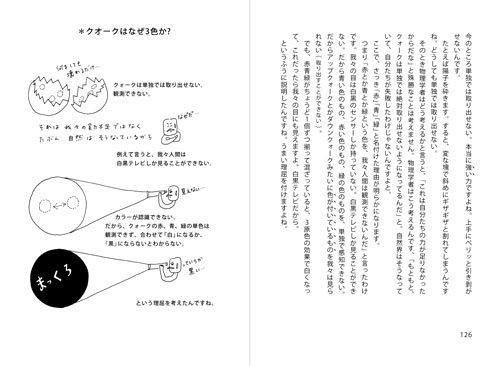 ＊クオークはなぜ3色か?
何をしても
壊れるだけ…
クォークは単独では取り出せない、
観測できない。
なぜだ…
それは我々の努力不足ではなく
たぶん自然はそうなっているから
例えて言うと、我々人間は
白黒テレビしか見ることができない。
見えない
カラーが認識できない。
だから、クォークの赤、青、緑の単色は
観測できず、合わせて「白」になるか、
「黒」にならないとわからない。
まっくろ
っていうか
黒い…
という理屈を考えたんですね。
今のところ単独では取り出せない。本当に強い力ですよね。上手にペリッと引き剥が
せないんです。
たとえば陽子を砕きます。すると、変な境で斜めにギザギザと割れてしまうんです
ね。どうしても単独で取り出せない。
そのとき物理学者はどう考えるかと言うと、「これは自分たちの力が足りなかった
からだな」と殊勝なことは考えません。物理学者はこう考えるんです、「もともと、
クォークは単独では絶対取り出せないようになってるんだ」と。自然界はそうなって
いて、自分たちが失敗したわけじゃないんですよと。
ここで、さっき「赤」「青」「緑」と名付けた理由が明らかになります。
つまり「赤とか青とか緑という色を、我々人間は観測できないんだ」と言ったわけ
です。我々の目は白黒のセンサーしか持っていない。白黒テレビしか見ることができ
ない。だから青い色のもの、赤い色のもの、緑の色のものを、単独で感知できない。
だからアップクォークとかダウンクォークみたいに色が付いているものを我々は見ら
れない（取り出すことができない）。
でも、赤青緑がちょうど1個ずつ揃って混ざっていると、3原色の効果で白くなっ
て、これだったら我々の目にも見えますよ、白黒テレビだから。
というふうに説明したんですね。うまい理屈を付けますよね。
126